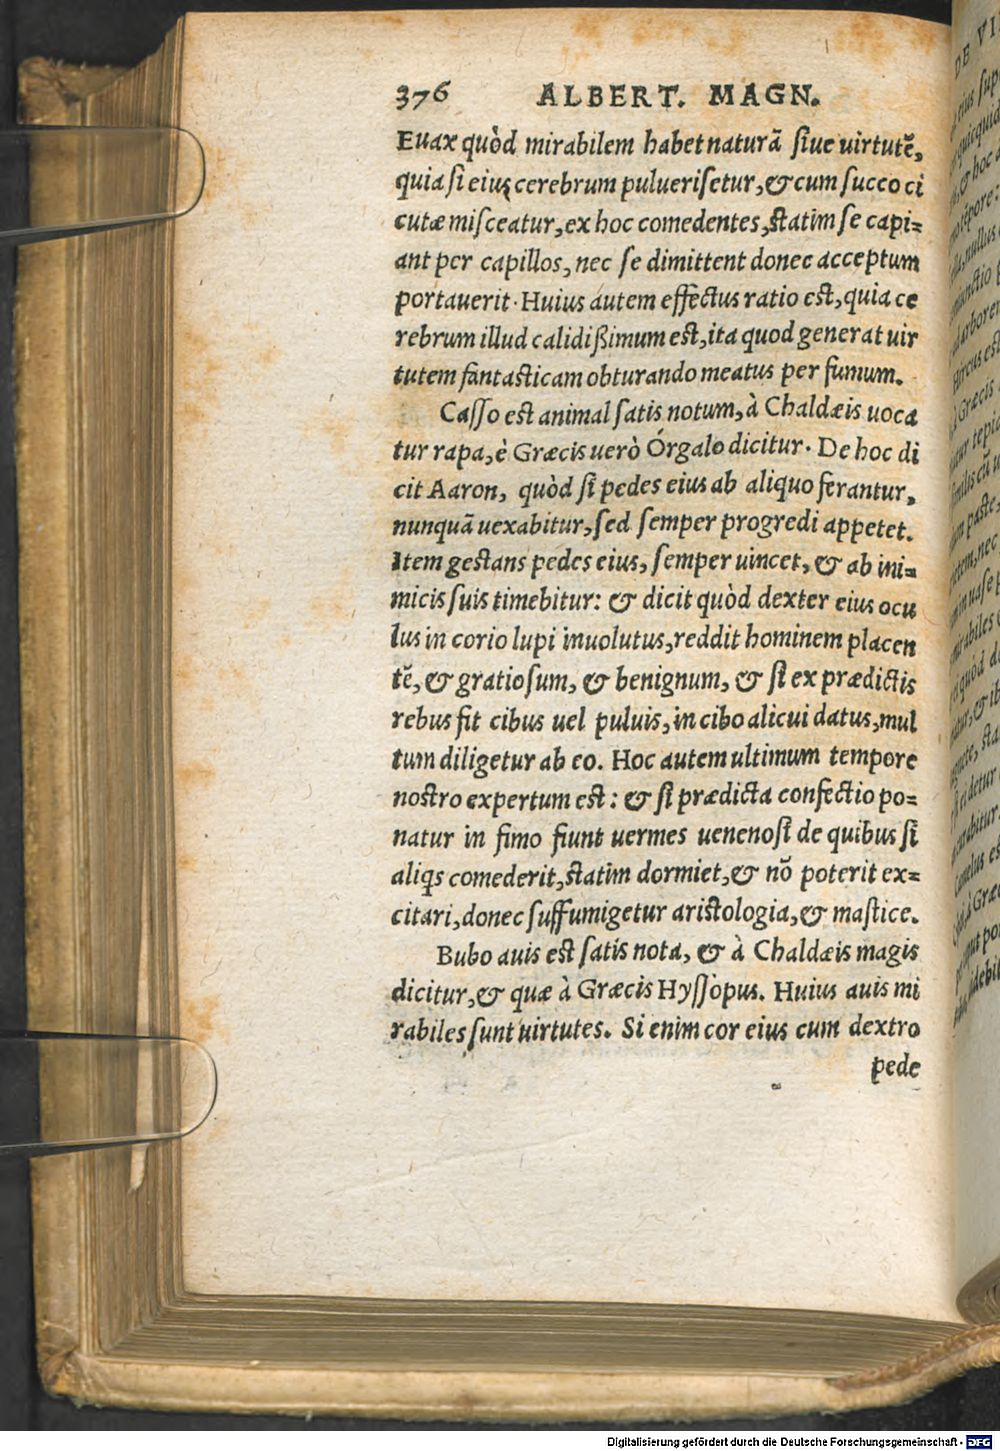 376 ALBERT. MAGN.
Euax quòd mirabilem habet naturã ſiue uirtutẽ,
quia ſi eius cerebrum pulueriſetur, & cum ſucco ci
cutæ miſceatur, ex hoc comedentes, ſtatim ſe capi=
ant per capillos, nec ſe dimittent donec acceptum
portauerit. Huius autem effectus ratio eſt, quia ce
rebrum illud calidißimum eſt, ita quod generat uir
tutem fantaſticam obturando meatus per fumum.
Caſſo eſt animal ſatis notum, à Chaldæis uoca
tur rapa, è Græcis uerò Órgalo dicitur. De hoc di
cit Aaron, quòd ſi pedes eius ab aliquo ferantur,
nunquã uexabitur, ſed ſemper progredi appetet.
Item geſtans pedes eius, ſemper uincet, & ab ini=
micis ſuis timebitur: & dicit quòd dexter eius ocu
lus in corio lupi inuolutus, reddit hominem placen
tẽ, & gratioſum, & benignum, & ſi ex prædictis
rebus fit cibus uel puluis, in cibo alicui datus, mul
tum diligetur ab eo. Hoc autem ultimum tempore
noſtro expertum eſt: & ſi prædicta confectio po=
natur in fimo fiunt uermes uenenoſi de quibus ſi
aliqs comederit, ſtatim dormiet, & nõ poterit ex=
citari, donec ſuffumigetur ariſtologia, & maſtice.
Bubo auis eſt ſatis nota, & à Chaldæis magis
dicitur, & quæ à Græcis Hyſſopus. Huius auis mi
rabiles ſunt uirtutes. Si enim cor eius cum dextro
pede
Digitalisierung gefördert durch die Deutsche Forschungsgemeinschaft - DFG